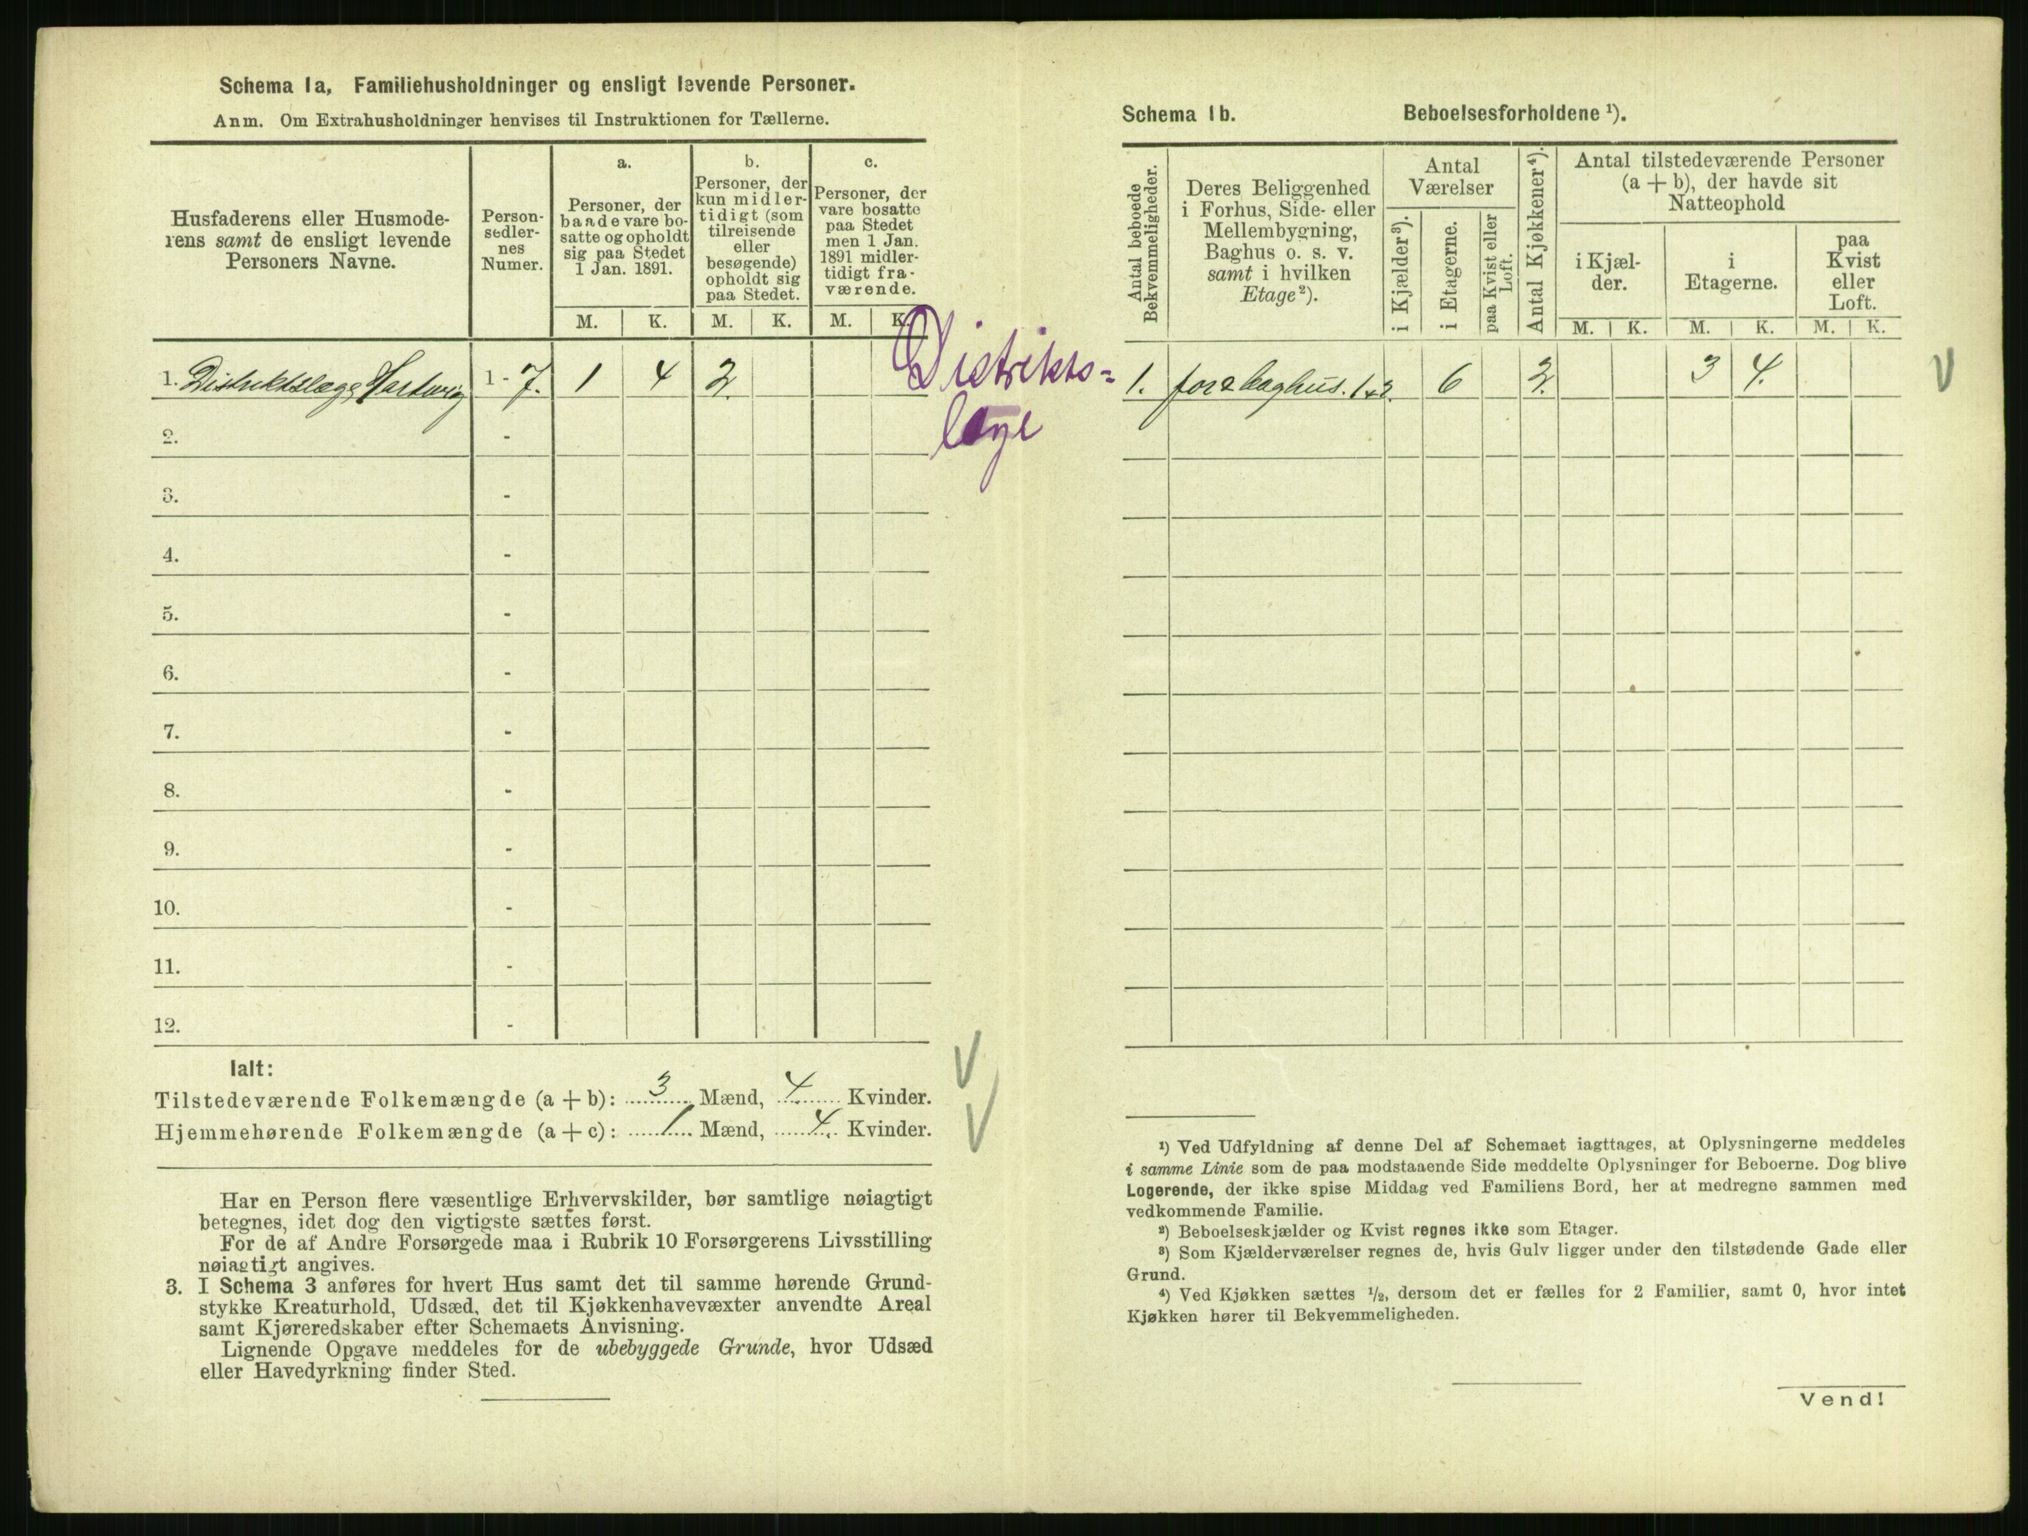 Schema 1a, Familiehusholdninger og ensligt levende Personer.
Anm. Om Extrahusholdninger henvises til Instruktionen for Tællerne.
Husfaderens eller Husmode-
rens samt de ensligt levende
Personers Navne.
Person-
sedler-
nes
Numer.
a.
Personer, der
baade vare bo-
satte og opholdt
sig paa Stedet
1 Jan. 1891.
b.
Personer, der
kun midler-
tidigt (som
tilreisende
eller
besøgende)
opholdt sig
paa Stedet.
c.
Personer, der
vare bosatte
paa Stedet
men 1 Jan.
1891 midler-
tidigt fra-
værende.
M. K. M. K. M. K.
1. Distriktslæge Hartwig 1 - 7. 1 4 2.
Distrikts=
læge
2. -
3. -
4. -
5. -
6. -
7. -
8. -
9. -
10. -
11. -
12. -
Ialt:
Tilstedeværende Folkemængde (a + b): 3 Mænd, 4 Kvinder.
Hjemmehørende Folkemængde (a + c): 1 Mænd, 4 Kvinder.
Har en Person flere væsentlige Erhvervskilder, bør samtlige nøiagtigt
betegnes, idet dog den vigtigste sættes først.
For de af Andre Forsørgede maa i Rubrik 10 Forsørgerens Livsstilling
nøiagtigt angives.
3. I Schema 3 anføres for hvert Hus samt det til samme hørende Grund-
stykke Kreaturhold, Udsæd, det til Kjøkkenhavevæxter anvendte Areal
samt Kjøreredskaber efter Schemaets Anvisning.
Lignende Opgave meddeles for de ubebyggede Grunde, hvor Udsæd
eller Havedyrkning finder Sted.
Schema 1b. Beboelsesforholdene ¹).
Antal beboede
Bekvemmeligheder.
Deres Beliggenhed
i Forhus, Side- eller
Mellembygning,
Baghus o. s. v.
samt i hvilken
Etage²).
Antal
Værelser
i Kjælder³).
i Etagerne.
paa Kvist eller
Loft.
Antal Kjøkkener⁴).
Antal tilstedeværende Personer
(a + b), der havde sit
Natteophold
i Kjæl-
der.
i
Etagerne.
paa
Kvist
eller
Loft.
M. K. M. K. M. K.
1. for & baghus. 1+2. 6 2. 3 4.
¹) Ved Udfyldning af denne Del af Schemaet iagttages, at Oplysningerne meddeles
i samme Linie som de paa modstaaende Side meddelte Oplysninger for Beboerne. Dog blive
Logerende, der ikke spise Middag ved Familiens Bord, her at medregne sammen med
vedkommende Familie.
²) Beboelseskjælder og Kvist regnes ikke som Etager.
³) Som Kjælderværelser regnes de, hvis Gulv ligger under den tilstødende Gade eller
Grund.
⁴) Ved Kjøkken sættes ¹/₂, dersom det er fælles for 2 Familier, samt 0, hvor intet
Kjøkken hører til Bekvemmeligheden.
Vend!